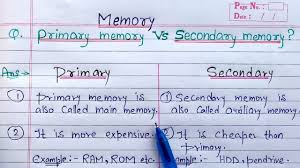 Page No.:
Date: / /
Memory
Q. Primary memory Vs Secondary memory?
Ans→ Primary Secondary
① Primary memory is ① Secondary memory is
also called main memory. also called Auxiliary memory.
② It is more expensive. ② It is cheaper than
primary.
Example:- RAM, ROM etc. Example:- HDD, pendrive